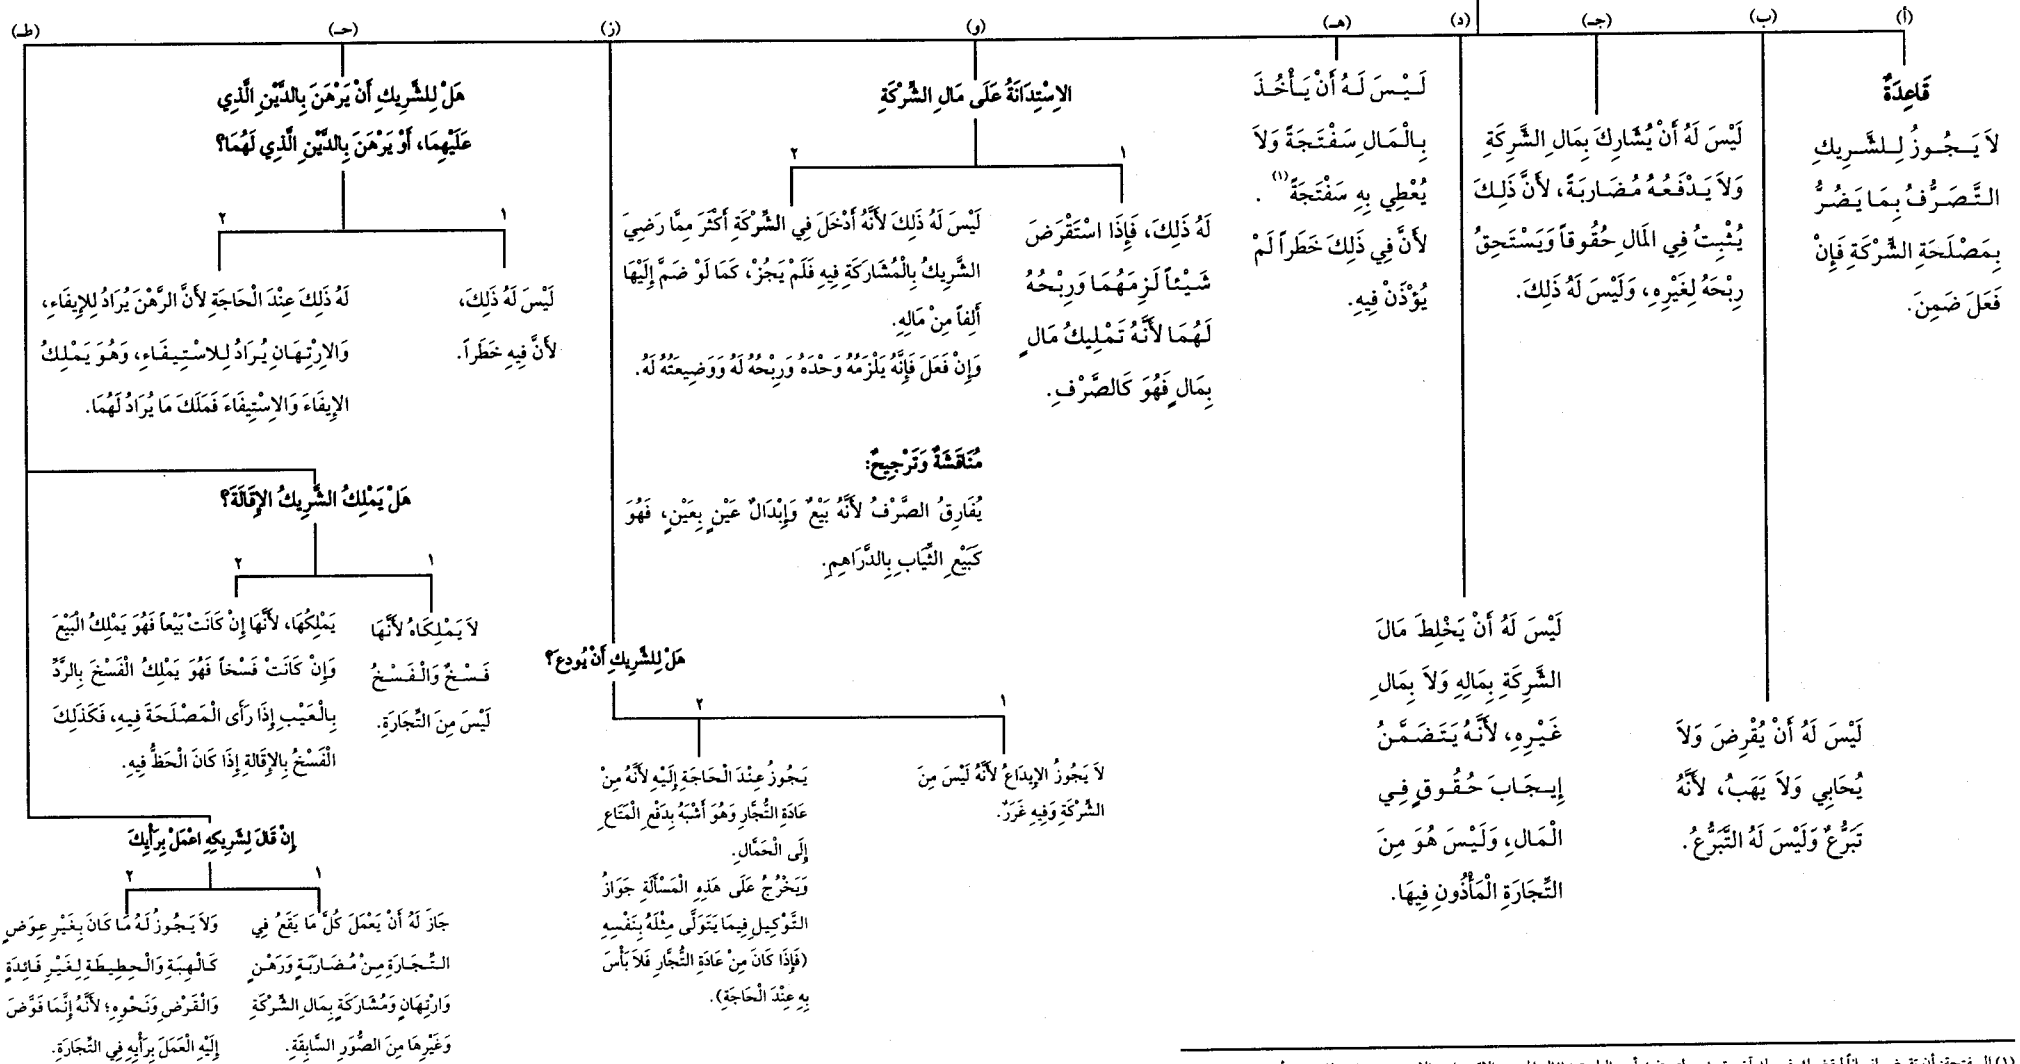 (أ)
قَاعِدَةٌ
لاَ يَـجُـوزُ لِـلشَّـرِيـكِ
الـتَّـصَـرُّفُ بِـمَـا يَـضُـرُّ
بِمَصْلَحَةِ الشَّرْكَةِ فَإِنْ
فَعَلَ ضَمِنَ.
(ب)
لَيْسَ لَهُ أَنْ يُقْرِضَ وَلاَ
يُحَابِي وَلاَ يَهَبُ، لأَنَّهُ
تَبَرُّعٌ وَلَيْسَ لَهُ التَّبَرُّعُ.
(جـ)
لَيْسَ لَهُ أَنْ يُشَارِكَ بِمَالِ الشَّرِكَةِ
وَلاَ يَـدْفَـعُـهُ مُـضَـارَبَـةً، لأَنَّ ذَلِـكَ
يُثْبِتُ فِي المَالِ حُقُوقاً وَيَسْتَحِقُّ
رِبْحَهُ لِغَيْرِهِ، وَلَيْسَ لَهُ ذَلِكَ.
(د)
لَيْسَ لَهُ أَنْ يَخْلِطَ مَالَ
الشَّرِكَةِ بِمَالِهِ وَلاَ بِمَالِ
غَـيْـرِهِ، لأَنَّـهُ يَـتَـضَـمَّـنُ
إِيـجَـابَ حُـقُـوقٍ فِـي
الْمَالِ، وَلَيْسَ هُوَ مِنَ
التِّجَارَةِ الْمَأْذُونِ فِيهَا.
(هـ)
لَـيْـسَ لَـهُ أَنْ يَـأْخُـذَ
بِـالْـمَـالِ سَـفْـتَـجَـةً وَلاَ
يُعْطِي بِهِ سَفْتَجَةً (١).
لأَنَّ فِي ذَلِكَ خَطَراً لَمْ
يُؤْذَنْ فِيهِ.
(و)
الاِسْتِدَانَةُ عَلَى مَالِ الشَّرْكَةِ
١
لَهُ ذَلِكَ، فَإِذَا اسْتَقْرَضَ
شَـيْـئـاً لَـزِمَـهُـمَـا وَرِبْـحُـهُ
لَهُمَا لأَنَّهُ تَمْلِيكُ مَالٍ
بِمَالٍ فَهُوَ كَالصَّرْفِ.
٢
لَيْسَ لَهُ ذَلِكَ لأَنَّهُ أَدْخَلَ فِي الشَّرْكَةِ أَكْثَرَ مِمَّا رَضِيَ
الشَّرِيكُ بِالْمُشَارَكَةِ فِيهِ فَلَمْ يَجُزْ، كَمَا لَوْ ضَمَّ إِلَيْهَا
أَلِفاً مِنْ مَالِهِ.
وَإِنْ فَعَلَ فَإِنَّهُ يَلْزَمُهُ وَحْدَهُ وَرِبْحُهُ لَهُ وَوَضِيعَتُهُ لَهُ.
مُنَاقَشَةٌ وَتَرْجِيحٌ:
يُفَارِقُ الصَّرْفُ لأَنَّهُ بَيْعٌ وَإِبْدَالٌ عَيْنٍ بِعَيْنٍ، فَهُوَ
كَبَيْعِ الثِّيَابِ بِالدَّرَاهِمِ.
(ز)
هَلْ لِلشَّرِيكِ أَنْ يُودِعَ؟
١
لاَ يَجُوزُ الإِيدَاعُ لأَنَّهُ لَيْسَ مِنَ
الشَّرْكَةِ وَفِيهِ غَرَرٌ.
٢
يَجُوزُ عِنْدَ الْحَاجَةِ إِلَيْهِ لأَنَّهُ مِنْ
عَادَةِ التُّجَّارِ وَهُوَ أَشْبَهُ بِدَفْعِ الْمَتَاعِ
إِلَى الْحَمَّالِ.
وَيَخْرُجُ عَلَى هَذِهِ الْمَسْأَلَةِ جَوَازُ
التَّوْكِيلِ فِيمَا يَتَوَلَّى مِثْلَهُ بِنَفْسِهِ
(فَإِذَا كَانَ مِنْ عَادَةِ التُّجَّارِ فَلاَ بَأْسَ
بِهِ عِنْدَ الْحَاجَةِ).
(حـ)
هَلْ لِلشَّرِيكِ أَنْ يَرْهَنَ بِالدَّيْنِ الَّذِي
عَلَيْهِمَا، أَوْ يَرْهَنَ بِالدَّيْنِ الَّذِي لَهُمَا؟
١
لَيْسَ لَهُ ذَلِكَ،
لأَنَّ فِيهِ خَطَراً.
٢
لَهُ ذَلِكَ عِنْدَ الْحَاجَةِ لأَنَّ الرَّهْنَ يُرَادُ لِلإِيفَاءِ،
وَالارْتِـهَـانِ يُـرَادُ لِـلاسْـتِـيـفَـاءِ، وَهُـوَ يَـمْـلِـكُ
الإِيفَاءَ وَالاِسْتِيفَاءَ فَمَلَكَ مَا يُرَادُ لَهُمَا.
(طـ)
هَلْ يَمْلِكُ الشَّرِيكُ الإِقَالَةَ؟
١
لاَ يَمْلِكَاهُ لأَنَّهَا
فَـسْـخٌ وَالْـفَـسْـخُ
لَيْسَ مِنَ التِّجَارَةِ.
٢
يَمْلِكُهَا، لأَنَّهَا إِنْ كَانَتْ بَيْعاً فَهُوَ يَمْلِكُ الْبَيْعَ
وَإِنْ كَانَتْ فَسْخاً فَهُوَ يَمْلِكُ الْفَسْخَ بِالرَّدِّ
بِالْعَيْبِ إِذَا رَأَى الْمَصْلَحَةَ فِيهِ، فَكَذَلِكَ
الْفَسْخُ بِالإِقَالةِ إِذَا كَانَ الْحَظُّ فِيهِ.
إِنْ قَالَ لِشَرِيكِهِ اعْمَلْ بِرَأْيِكَ
١
جَازَ لَهُ أَنْ يَعْمَلَ كُلَّ مَا يَقَعُ فِي
التِّـجَـارَةِ مِـنْ مُـضَـارَبَـةٍ وَرَهْـنٍ
وَارْتِهَانٍ وَمُشَارَكَةٍ بِمَالِ الشَّرْكَةِ
وَغَيْرِهَا مِنَ الصُّوَرِ السَّابِقَةِ.
٢
وَلاَ يَـجُـوزُ لَـهُ مَا كَانَ بِغَيْرِ عِوَضٍ
كَـالْـهِـبَـةِ وَالْـحـطِـيـطَـةِ لِـغَـيْـرِ فَـائِـدَةٍ
وَالْقَرْضِ وَنَحْوِهِ؛ لأَنَّهُ إِنَّمَا فَوَّضَ
إِلَيْهِ الْعَمَلَ بِرَأْيِهِ فِي التِّجَارَةِ.